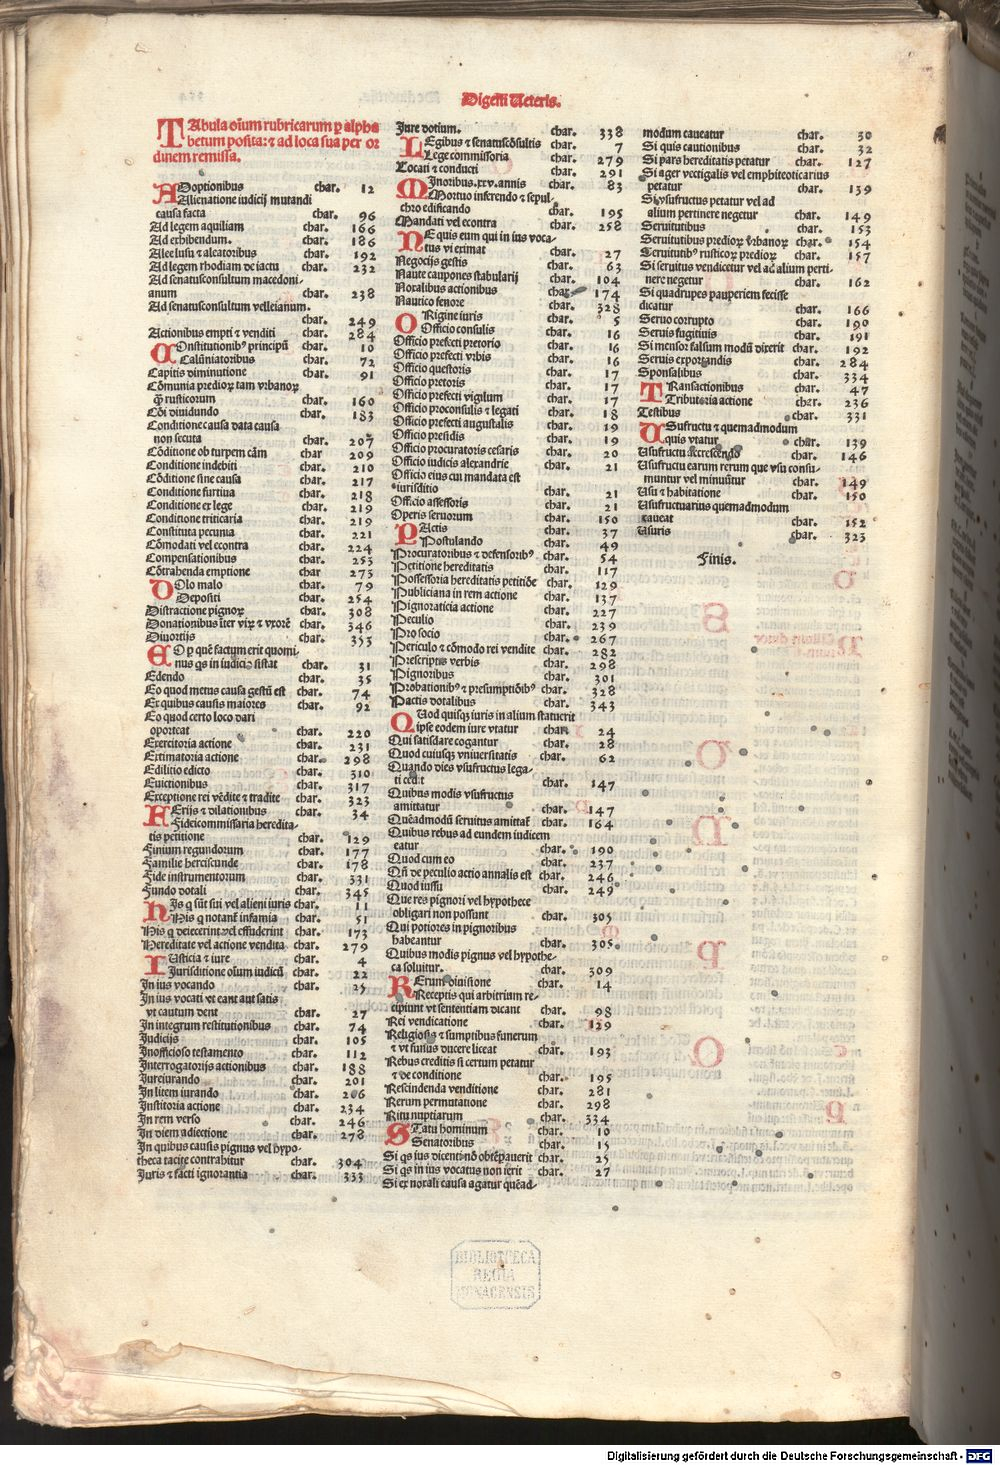 Digesti Veteris.
Tabula oīum rubricarum ꝑ alpha
betum posita: ⁊ ad loca sua per or
dinem remissa.
Adoptionibus char. 12
Alienatione iudicij mutandi
causa facta char. 96
Ad legem aquiliam char. 166
Ad exhibendum. char. 186
Alee lusu ⁊ aleatoribus char. 192
Ad legem rhodiam de iactu char. 232
Ad senatusconsultum macedoni-
anum char. 238
Ad senatusconsultum velleianum.
char. 249
Actionibus empti ⁊ venditi char. 284
Constitutionibꝰ principū char. 10
Calūniatoribus char. 72
Capitis diminutione char. 91
Cōmunia predioꝝ tam vrbanoꝝ
ꝙ̄ rusticorum char. 160
Cōi diuidundo char. 183
Conditione causa data causa
non secuta char. 207
Cōditione ob turpem cām char 209
Conditione indebiti char. 210
Cōditione sine causa char. 217
Conditione furtiua char. 218
Conditione ex lege char. 219
Conditione triticaria char. 219
Constituta pecunia char. 221
Cōmodati vel econtra char. 224
Compensationibus char. 253
Cōtrahenda emptione char 273
Dolo malo char. 79
Depositi char. 254
Distractione pignoꝝ char. 308
Donationibus īter viꝝ ⁊ vxorē char. 346
Diuortijs char. 353
Eo ꝑ quē factum erit quomi-
nus qs in iudicio sistat char. 31
Edendo char. 35
Eo quod metus causa gestū est char. 74
Ex quibus causis maiores char. 92
Eo quod certo loco dari
oporteat char. 220
Exercitoria actione char. 231
Extimatoria actione char. 298
Edilitio edicto char. 310
Euictionibus char. 317
Exceptione rei vēdite ⁊ tradite char. 323
Ferijs ⁊ dilationibus char. 34
Fideicommissaria heredita-
tis petitione char. 129
Finium regundorum char. 177
Familie herciscunde char. 178
Fide instrumentorum char. 331
Fundo dotali char. 345
His q sūt sui vel alieni iuris char. 11
His q notanť infamia char. 51
His q deiecerint vel effuderint char. 173
Hereditate vel actione vendita char. 279
Iusticia ⁊ iure char. 4
Jurisditione oīum iudicū char. 22
In ius vocando char. 25
In ius vocati vt eant aut satis
vt cautum dent char. 27
In integrum restitutionibus char. 74
Judicijs char. 105
Inofficioso testamento char. 112
Interrogatorijs actionibus char. 188
Jureiurando char. 201
In litem iurando char. 206
Institoria actione char. 234
In rem verso char. 246
In diem adiectione char. 278
In quibus causis pignus vel hypo-
theca tacite contrahitur char. 304
Juris ⁊ facti ignorantia char. 333
Jure dotium. char. 338
Legibus ⁊ senatuscōsultis char. 7
Lege commissoria char. 279
Locati ⁊ conducti char. 291
Minoribus.xxv.annis char. 83
Mortuo inferendo ⁊ sepul-
chro edificando char. 195
Mandati vel econtra char. 258
Ne quis eum qui in ius voca-
tus vi eximat char. 27
Negocijs gestis char. 63
Naute caupones stabularij char. 104
Noxalibus actionibus char. 174
Nautico fenore char. 328
Origine iuris char. 5
Officio consulis char. 16
Officio prefecti pretorio char. 16
Officio prefecti vrbis char. 16
Officio questoris char. 17
Officio pretoris char. 17
Officio prefecti vigilum char. 17
Officio proconsulis ⁊ legati char. 18
Officio prefecti augustalis char. 19
Officio presidis char. 19
Officio procuratoris cesaris char. 20
Officio iudicis alexandrie char. 21
Officio eius cui mandata est
iurisditio char. 21
Officio assessoris char. 21
Operis seruorum char. 150
Pactis char. 37
Postulando char. 49
Procuratoribus ⁊ defensoribꝰ char. 54
Petitione hereditatis char. 117
Possessoria hereditatis petitiōe char. 129
Publiciana in rem actione char. 137
Pignoraticia actione char. 227
Peculio char. 239
Pro socio char. 267
Periculo ⁊ cōmodo rei vendite char. 282
Prescriptis verbis char. 298
Pignoribus char. 301
Probationibꝰ ⁊ presumptiōibꝰ char. 328
Pactis dotalibus char. 343
Quod quisqꝫ iuris in alium statuerit
ipse eodem iure vtatur char. 24
Qui satisdare cogantur char. 28
Quod cuiusqꝫ vniuersitatis char. 62
Quando dies vsufructus lega-
ti cedit char. 147
Quibus modis vsufructus
amittatur char. 147
Quēadmodū seruitus amittať char. 164
Quibus rebus ad eundem iudicem
eatur char. 190
Quod cum eo char. 237
Qñ de peculio actio annalis est char. 246
Quod iussu char. 249
Que res pignori vel hypothece
obligari non possunt char. 305
Qui potiores in pignoribus
habeantur char. 305
Quibus modis pignus vel hypothe-
ca soluitur. char. 309
Rerum diuisione char. 14
Receptis qui arbitrium re-
cipiunt vt sententiam dicant char. 98
Rei vendicatione char. 129
Religiosis ⁊ sumptibus funerum
⁊ vt funus ducere liceat char. 193
Rebus creditis si certum petatur
⁊ de conditione char. 195
Rescindenda venditione char. 281
Rerum permutatione char. 298
Ritu nuptiarum char. 334
Statu hominum char. 10
Senatoribus char. 15
Si qs ius dicenti nō obtēꝑauerit char. 25
Si qs in ius vocatus non ierit char. 27
Si ex noxali causa agatur quēad-
modum caueatur char. 30
Si quis cautionibus char. 32
Si pars hereditatis petatur char. 127
Si ager vectigalis vel emphiteoticarius
petatur char. 139
Si vsufructus petatur vel ad
alium pertinere negetur char. 149
Seruitutibus char. 153
Seruitutibus predioꝝ vrbanoꝝ char. 154
Seruitutibꝰ rusticoꝝ predioꝝ char. 157
Si seruitus vendicetur vel ad alium perti-
nere negetur char. 162
Si quadrupes pauperiem fecisse
dicatur char. 166
Seruo corrupto char. 190
Seruis fugitiuis char. 191
Si mensor falsum modū dixerit char. 192
Seruis exportandis char. 284
Sponsalibus char. 334
Transactionibus char. 47
Tributoria actione char. 236
Testibus char. 331
Vsufructu ⁊ quemadmodum
quis vtatur char. 139
Usufructu accrescendo char. 146
Usufructu earum rerum que vsu consu-
muntur vel minuūtur char. 149
Usu ⁊ habitatione char. 150
Usufructuarius quemadmodum
caueat char. 152
Usuris char. 323
Finis.
BIBLIOTHECA
REGIA
MONACENSIS
Digitalisierung gefördert durch die Deutsche Forschungsgemeinschaft - DFG